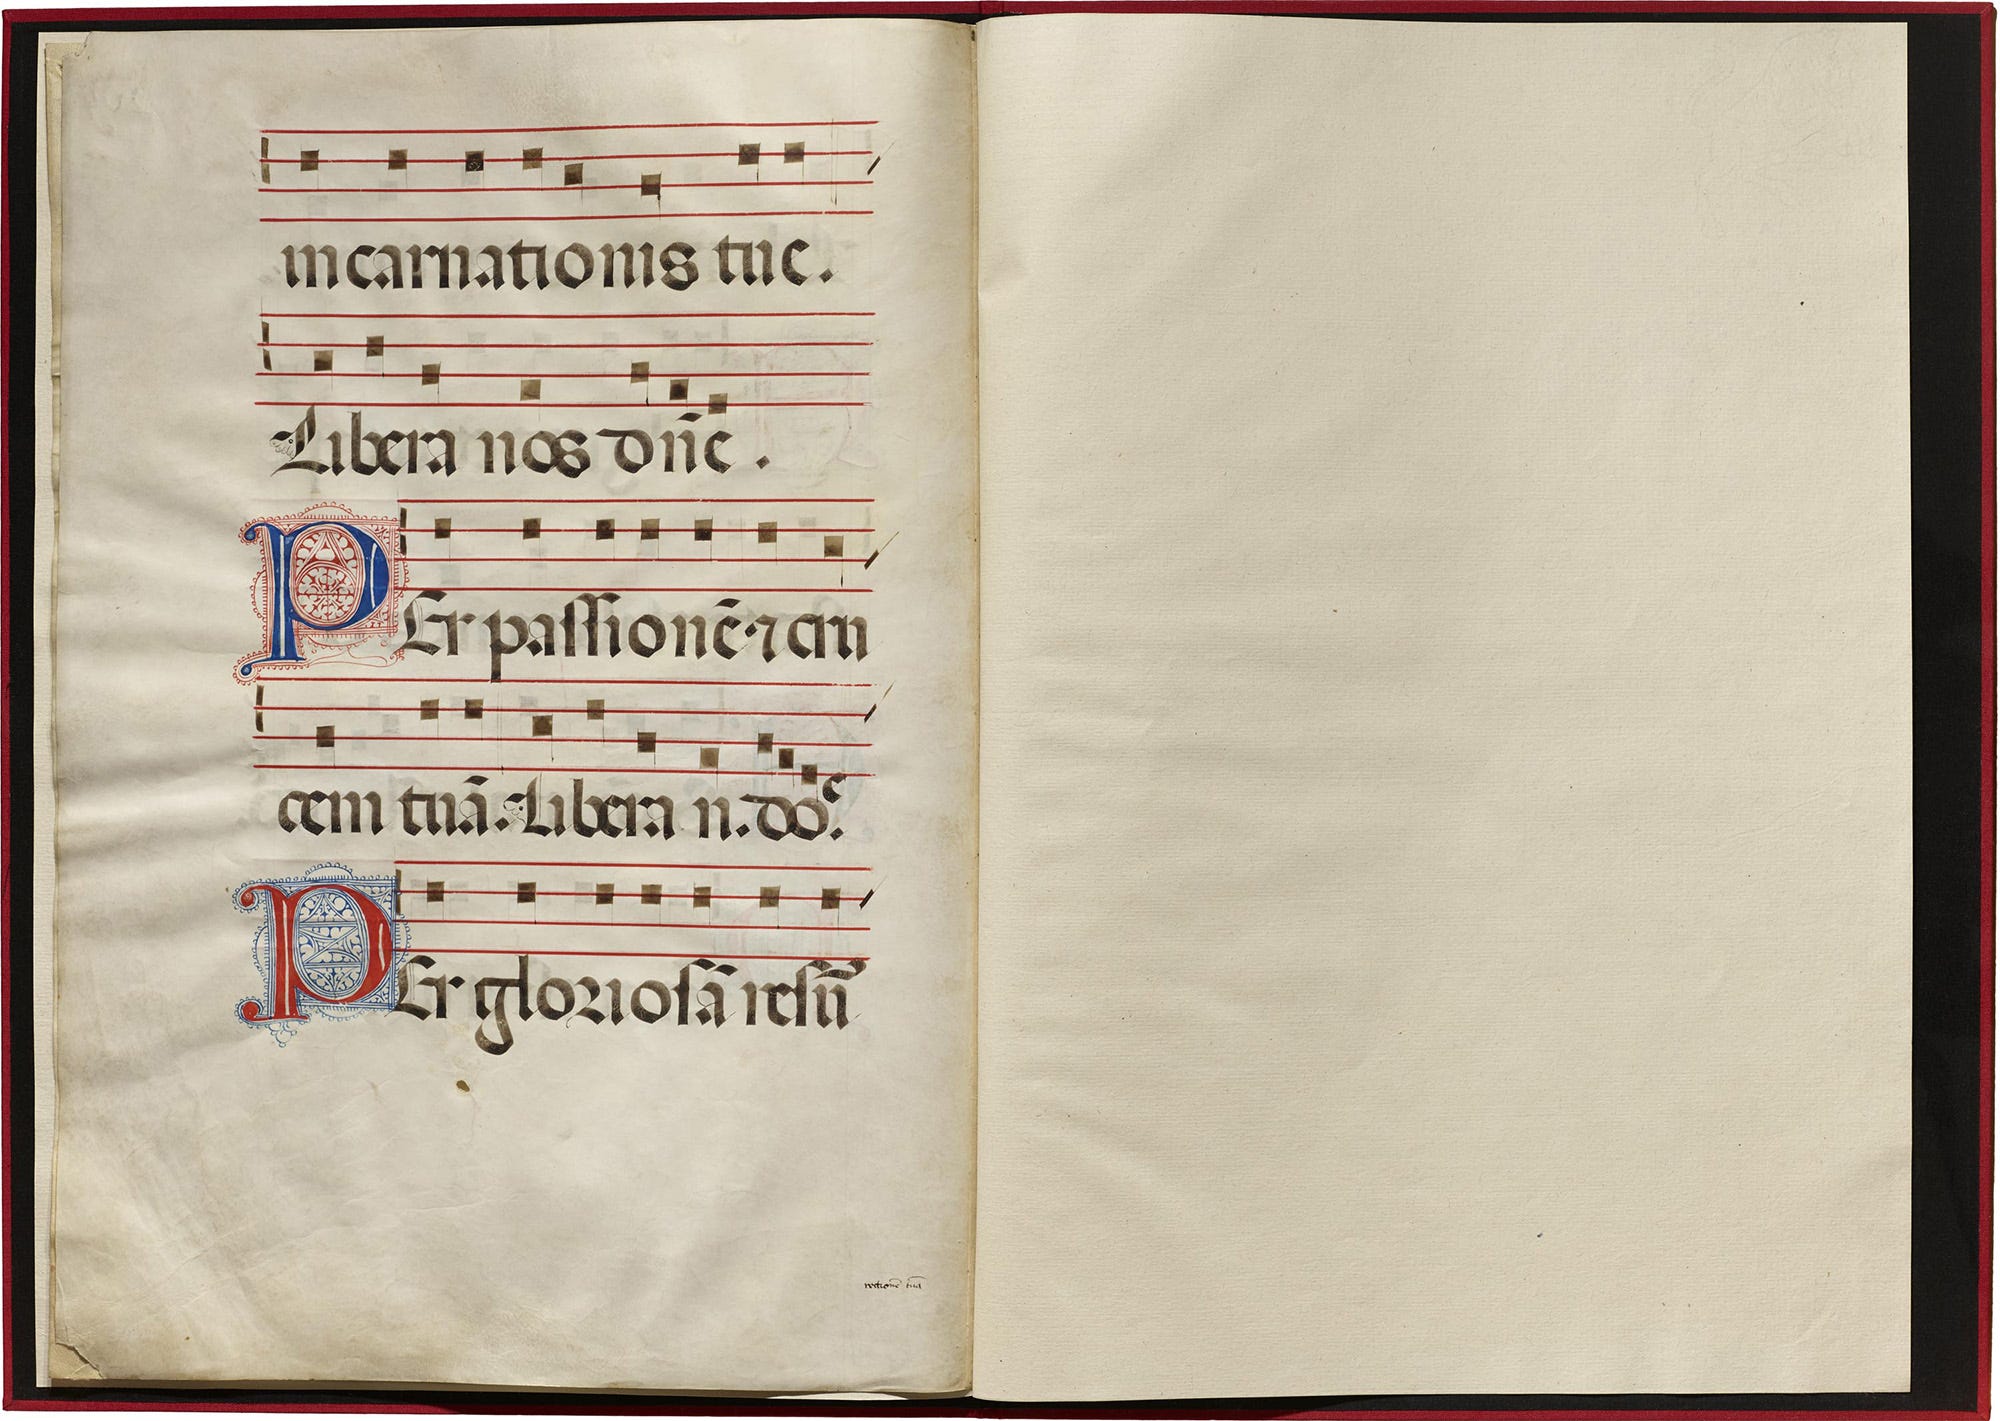 incarnationis tue.
Libera nos dñe.
PEr passionē ⁊ cru
cem tuā. Libera n. doᵉ.
PEr gloriosā resu
rectionē tuā